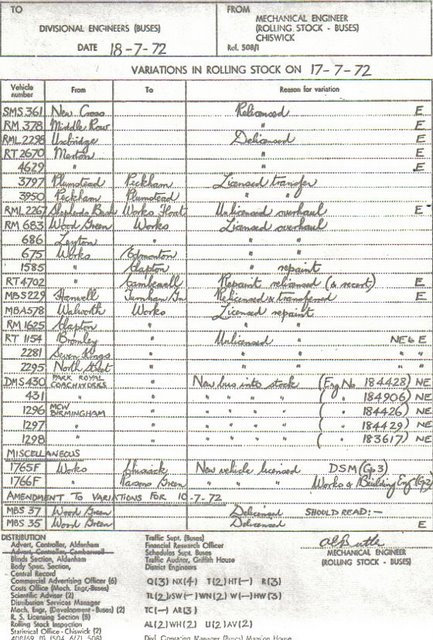 TO
FROM
DIVISIONAL ENGINEERS (BUSES)
MECHANICAL ENGINEER
(ROLLING STOCK - BUSES)
CHISWICK
DATE 18-7-72
Ref. 508/1
VARIATIONS IN ROLLING STOCK ON 17-7-72
Vehicle number From To Reason for variation
SMS 361 New Cross Relicensed E
RM 378 Middle Row " E
RML 2298 Uxbridge Delicensed E
RT 2670 Merton " E
4629 " " E
3797 Plumstead Peckham Licensed transfer
3950 Peckham Plumstead " "
RML 2267 Shepherds Bush Works Float Unlicensed overhaul E
RM 683 Wood Green Works Licensed overhaul
686 Leyton " " "
675 Works Edmonton " "
1585 " Clapton " repaint
RT 4702 " Camberwell Repaint relicensed (& recert) E
MBS 229 Hanwell Turnham Gn Relicensed & transferred E
MBA 578 Walworth Works Licensed repaint
RM 1625 Clapton " " "
RT 1154 Bromley " Unlicensed " NE6 E
2281 Seven Kings " " " " "
2295 North Street " " " " "
DMS 430 PARK ROYAL COACHWORKS " New bus into stock (Eng No 184428) NE
431 " " " " " " ( " 184906) NE
1296 MCW BIRMINGHAM " " " " " ( " 184426) NE
1297 " " " " " " ( " 184429) NE
1298 " " " " " " ( " 183617) NE
MISCELLANEOUS
1765F Works Chiswick New vehicle licensed DSM (Gp3)
1766F " Parsons Green " " " Works & Building Eng (Gp2)
AMENDMENT TO VARIATIONS FOR 10-7-72
MBS 37 Wood Green Delicensed SHOULD READ:-
MBS 35 Wood Green Delicensed E
DISTRIBUTION
Advert. Controller, Aldenham
Advert. Controller, Camberwell
Blinds Section, Aldenham
Body Spec. Section,
Central Record
Commercial Advertising Officer (6)
Costs Office (Mech. Engr-Buses)
Scientific Advisor (2)
Distribution Services Manager
Mech. Engr. (Development - Buses) (2)
R. S. Licensing Section (5)
Rolling Stock Inspection
Statistical Office - Chiswick (2)
Traffic Supt. (Buses)
Financial Research Officer
Schedules Supt. Buses
Traffic Auditor, Griffith House
District Engineers
Q(3) NX(4) T(2) HT(-) R(3)
TL(2) SW(-) WN(2) W(-) HW(3)
TC(-) AR(3)
AL(2) WH(2) U(2) AV(2)
MECHANICAL ENGINEER
(ROLLING STOCK - BUSES)